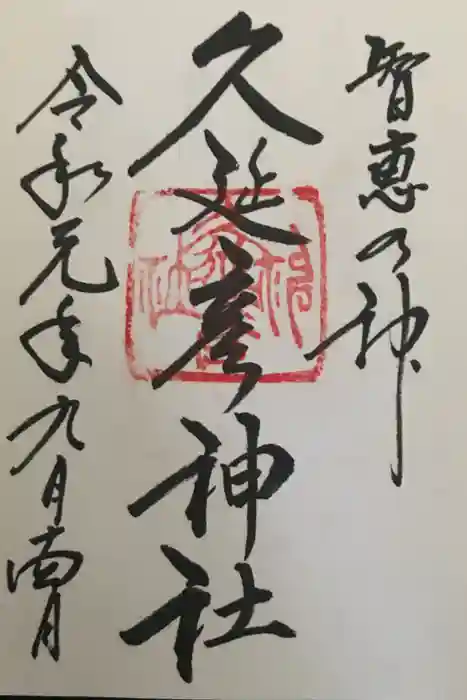 智恵の神
久延彦神社
令和元年九月南月